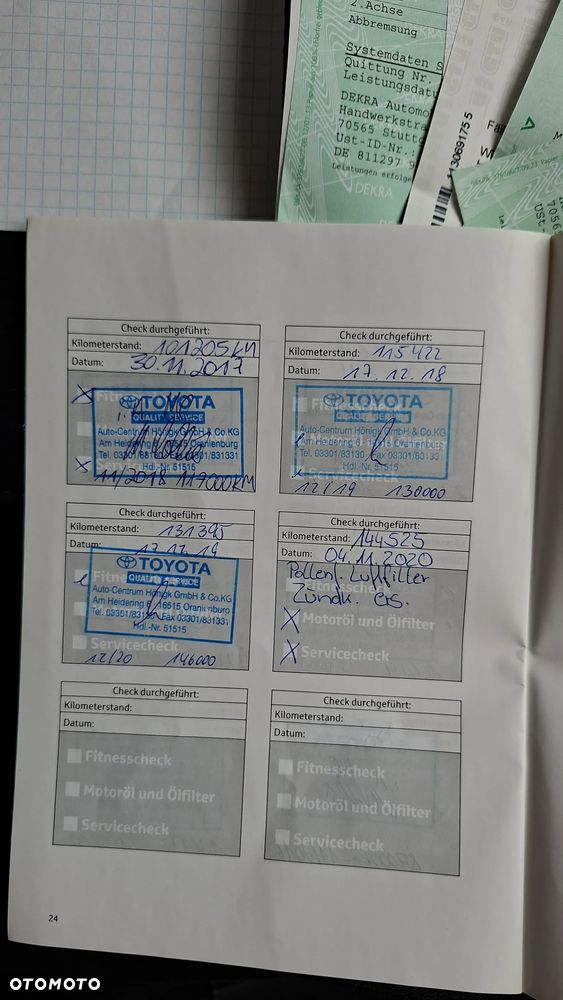 2.Achse
Abbremsung
Systemdaten S
Quittung Nr.
Leistungsdatu
DEKRA Automo
Handwerkstra
70565 Stutt
Ust-ID-Nr.:
DE 811297 9
Leistungen erfolge
DEKRA
13069175 5
Check durchgeführt:
Kilometerstand: 101205 KM
Datum: 30.11.2017
X
TOYOTA
QUALITY SERVICE
Auto-Centrum Hönigk GmbH & Co.KG
Am Heidering 6 · 16515 Oranienburg
Tel. 03301/83130 Fax 03301/831331
Hdl.-Nr. 51515
X
11/2018 117000KM
Check durchgeführt:
Kilometerstand: 115422
Datum: 17.12.18
TOYOTA
QUALITY SERVICE
Auto-Centrum Hönigk GmbH & Co.KG
Am Heidering 6 · 16515 Oranienburg
Tel. 03301/83130 Fax 03301/831331
Hdl.-Nr. 51515
12/19 130000
Check durchgeführt:
Kilometerstand: 131395
Datum: 17.12.19
TOYOTA
QUALITY SERVICE
Auto-Centrum Hönigk GmbH & Co.KG
Am Heidering 6 · 16515 Oranienburg
Tel. 03301/83130 Fax 03301/831331
Hdl.-Nr. 51515
Servicecheck
12/20 146000
Check durchgeführt:
Kilometerstand: 144525
Datum: 04.11.2020
Pollenf. Luftfilter
Fitnesscheck
Zündk. ers.
X Motoröl und Ölfilter
X Servicecheck
Check durchgeführt:
Kilometerstand:
Datum:
Fitnesscheck
Motoröl und Ölfilter
Servicecheck
Check durchgeführt:
Kilometerstand:
Datum:
Fitnesscheck
Motoröl und Ölfilter
Servicecheck
24
OTOMOTO